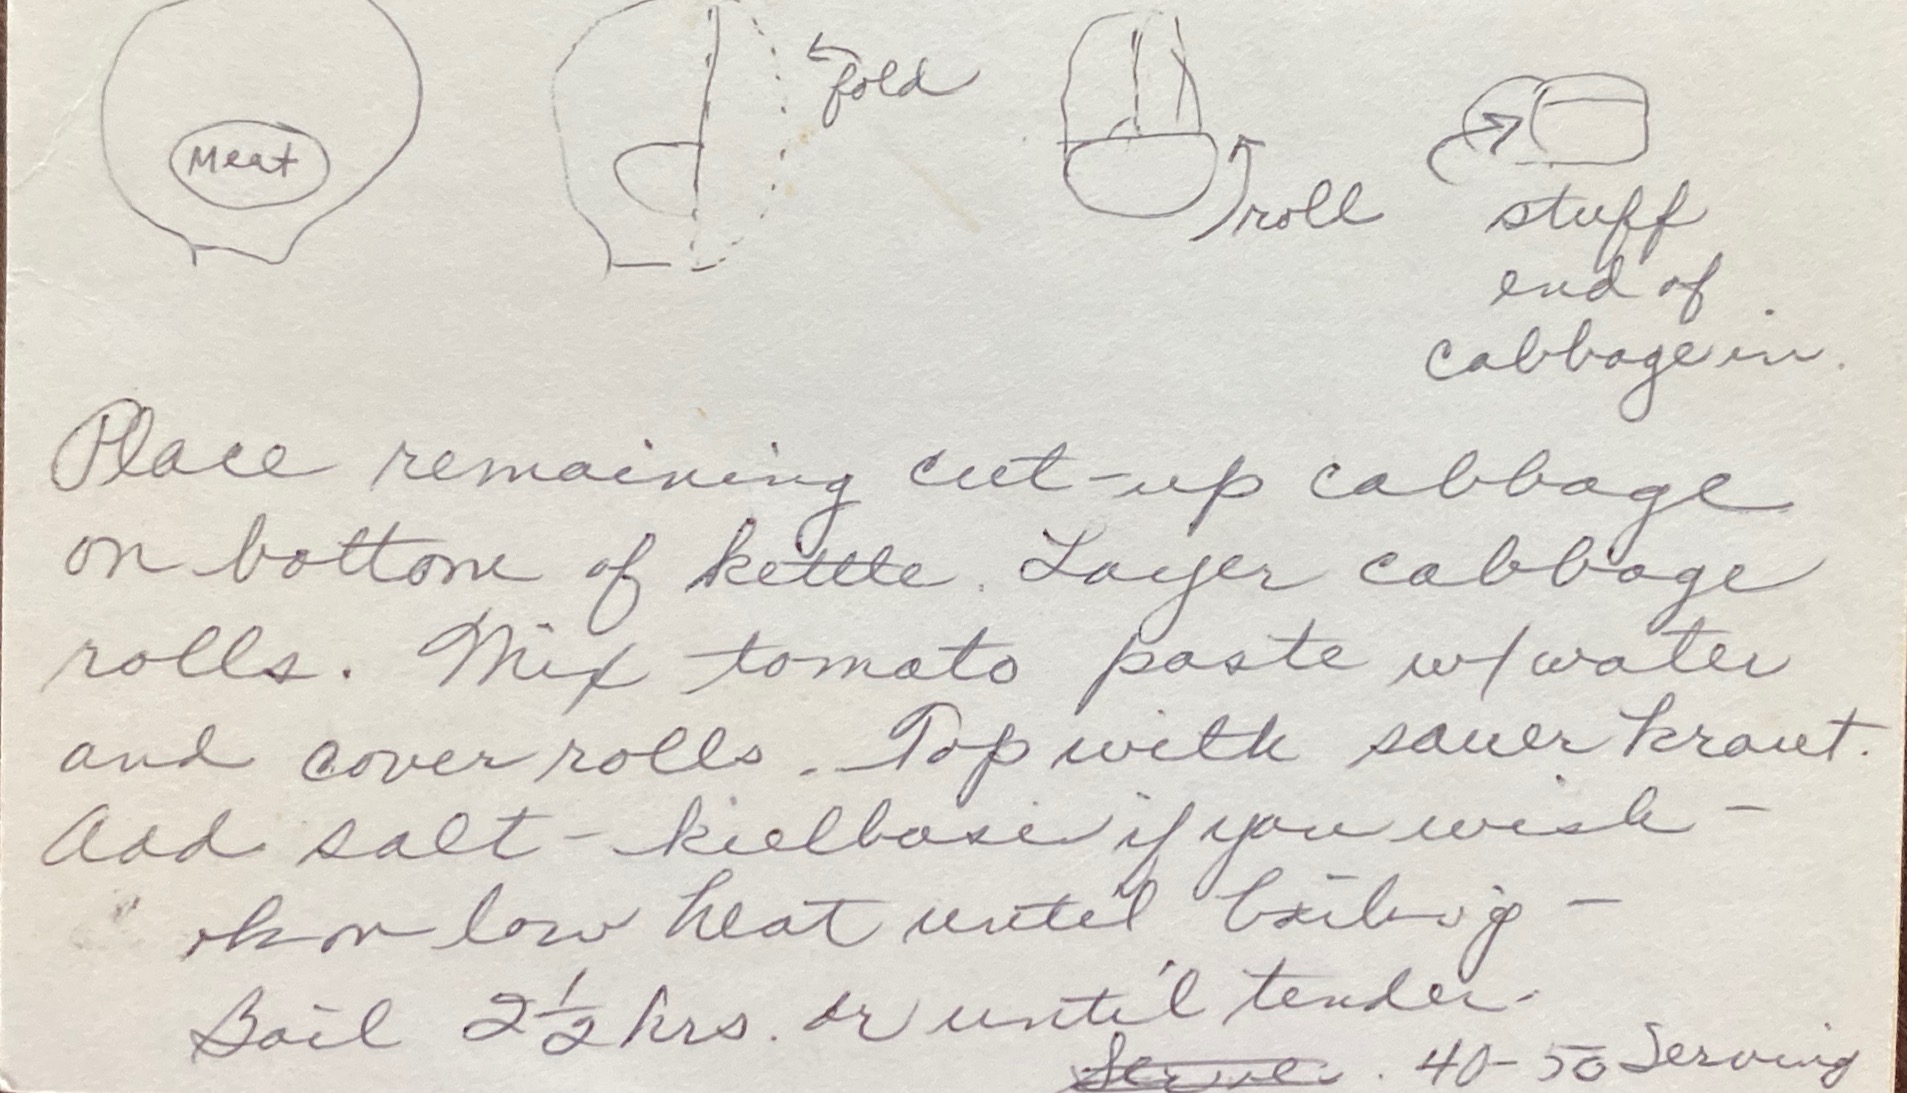 Meat
fold
roll
stuff
end of
cabbage in.
Place remaining cut-up cabbage
on bottom of kettle. Layer cabbage
rolls. Mix tomato paste w/water
and cover rolls. Top with sauer kraut.
Add salt - kielbasi if you wish -
on low heat until boiling -
Boil 2 1/2 hrs. or until tender.
Serve. 40-50 Serving